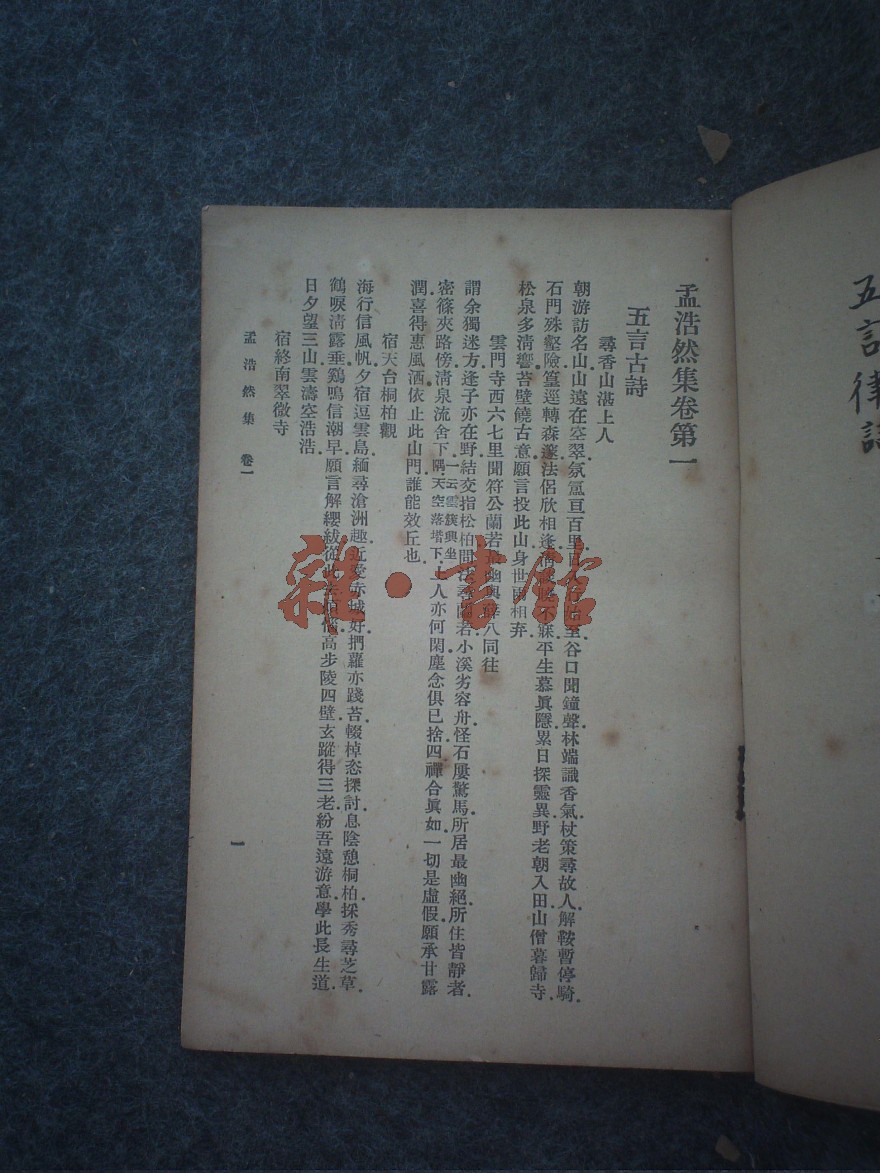 五言律詩
孟浩然集卷第一
五言古詩
尋香山湛上人
朝游訪名山山遠在空翠氛氳亘百里日入行始至谷口聞鐘聲林端識香氣杖策尋故人解鞍暫停騎
石門殊壑險篁逕轉森邃法侶欣相逢清談曉不寐平生慕眞隱累日探靈異野老朝入田山僧暮歸寺
松泉多清響苔壁饒古意願言投此山身世兩相弃
雲門寺西六七里聞符公蘭若最幽與薛八同往
謂余獨迷方逢子亦在野結交指松柏問法尋蘭若小溪劣容舟怪石屢驚馬所居最幽絕所住皆靜者
密篠夾路傍清泉流舍下一云雲簇興坐隅天空落塔下上人亦何閑塵念俱已捨四禪合眞如一切是虛假願承甘露
潤喜得惠風洒依止此山門誰能效丘也
宿天台桐柏觀
海行信風帆夕宿逗雲島緬尋滄洲趣近愛赤城好捫蘿亦踐苔輟棹恣探討息陰憩桐柏採秀尋芝草
鶴唳清露垂鷄鳴信潮早願言解纓紱從此去煩惱高步陵四壁玄蹤得三老紛吾遠游意學此長生道
日夕望三山雲濤空浩浩
宿終南翠微寺
孟浩然集 卷一
一
雜·書館